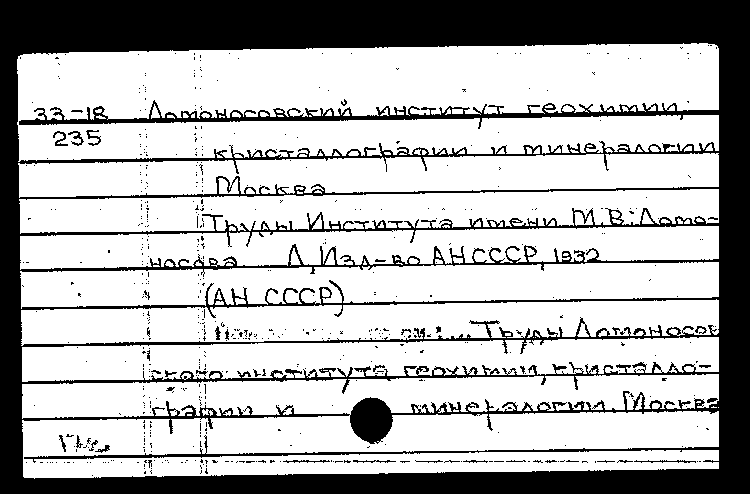 33-18 Ломоносовский институт геохимии,
235
кристаллографии и минералогии
Москва
Труды Института имени М.В. Ломо-
носова Л, Изд-во АН СССР, 1932
(АН СССР).
Труды Ломоносов
ского института геохимии, кристалло-
графии и минералогии. Москва